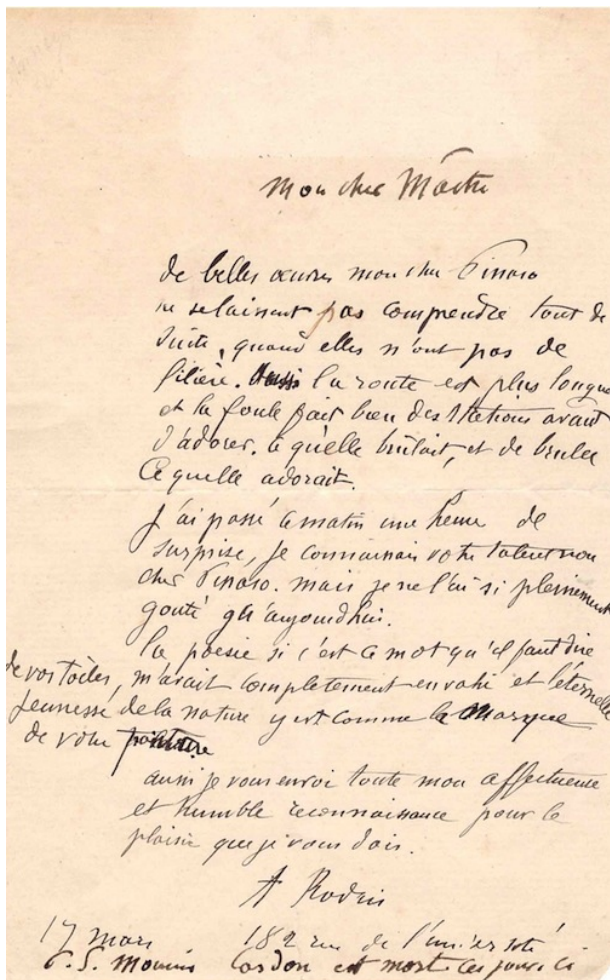 Mon cher Maître
de belles œuvres mon cher Pissaro
ne selaissent pas comprendre tout de
suite, quand elles n'ont pas de
filière. Aussi la route est plus longue
et la foule fait bien des stations avant
d'adorer. ce qu'elle brûlait, et de bruler
Ce quelle adorait.
J'ai passé ce matin une heure de
surprise, je connaissais votre talent mon
cher Pissaro. mais je ne l'ai si pleinement
gouté qu'aujourdhui.
la poesie si c'est ce mot qu'il faut dire
de vos toiles, m'avait completement envahi et l'éternelle
jeunesse de la nature y est comme la marque
de votre peinture
aussi je vous envoi toute mon affectueuse
et humble reconnaissance pour le
plaisir que je vous dois.
A Rodin
17 mars 182 rue de l'université
P.S. Cardon est mort ces jours ci